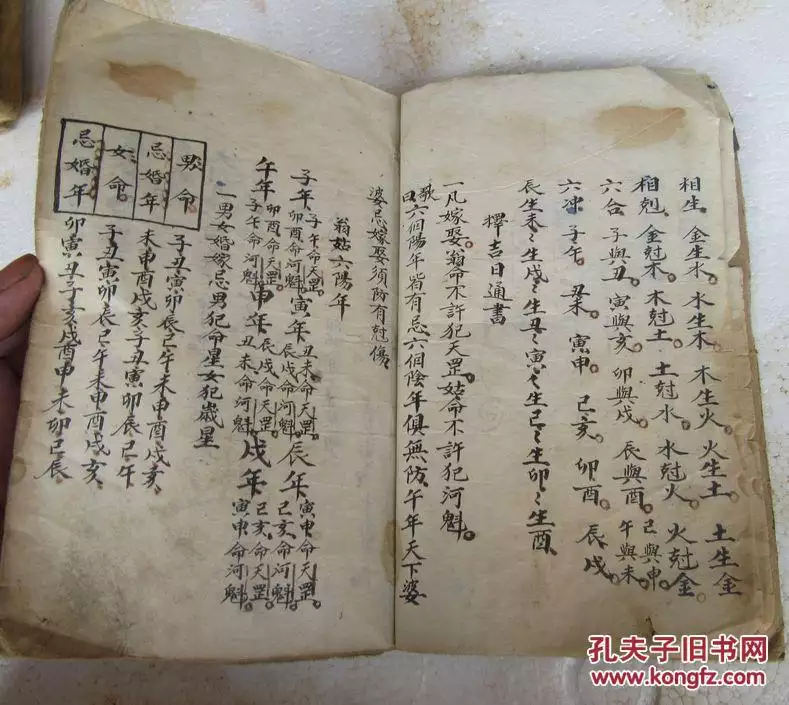 相生 金生水 水生木 木生火 火生土 土生金
相尅 金尅木 木尅土 土尅水 水尅火 火尅金
六合 子與丑 寅與亥 卯與戌 辰與酉 巳與申 午與未
六冲 子午 丑未 寅申 巳亥 卯酉 辰戌
辰生未〻生戌〻生丑〻寅〻生巳〻生卯〻生酉
擇吉日通書
一凡嫁娶翁命不許犯天罡姑命不許犯河魁
歌曰六個陽年皆有忌六個陰年俱無防午年天下婆
婆忌嫁娶須防有尅傷
翁姑六陽年
子年子午命天罡卯酉命河魁寅年丑未命天罡辰戌命河魁辰年寅申命天罡巳亥命河魁
午年卯酉命天罡子午命河魁申年辰戌命天罡丑未命河魁戌年巳亥命天罡寅申命河魁
一男女婚嫁忌男犯命星女犯歲星
男命 子丑寅卯辰巳午未申酉戌亥
忌婚年 未申酉戌亥子丑寅卯辰巳午
女命 子丑寅卯辰巳午未申酉戌亥
忌婚年 卯寅丑子亥戌酉申未卯巳辰
孔夫子旧书网
www.kongfz.com